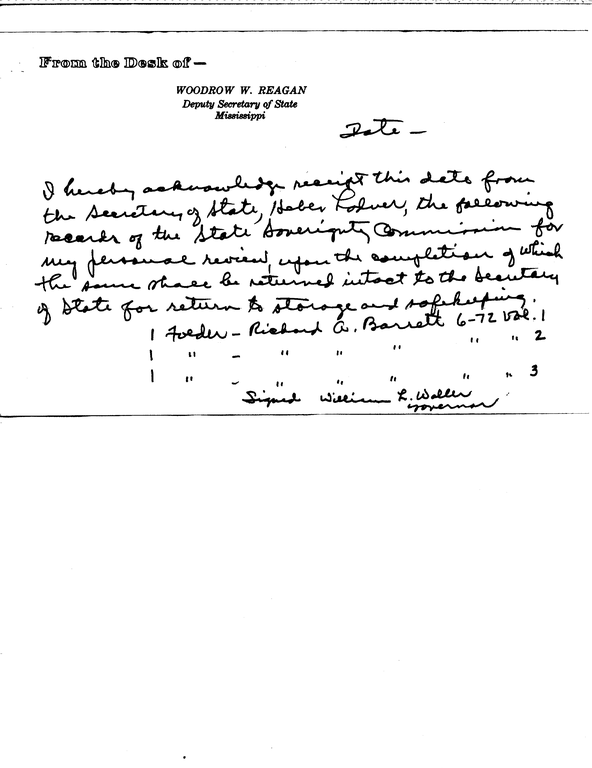 From the Desk of —
WOODROW W. REAGAN
Deputy Secretary of State
Mississippi
Date —
I hereby acknowledge receipt this date from
the Secretary of State, Heber Ladner, the following
records of the State Soverignty Commission for
my personal review, upon the completion of which
the same shall be returned intact to the Secretary
of State for return to storage and safekeeping.
1 Folder - Richard A. Barrett 6-72 Vol. 1
1 " - " " " " " 2
1 " - " " " " " 3
Signed William L. Waller
Governor